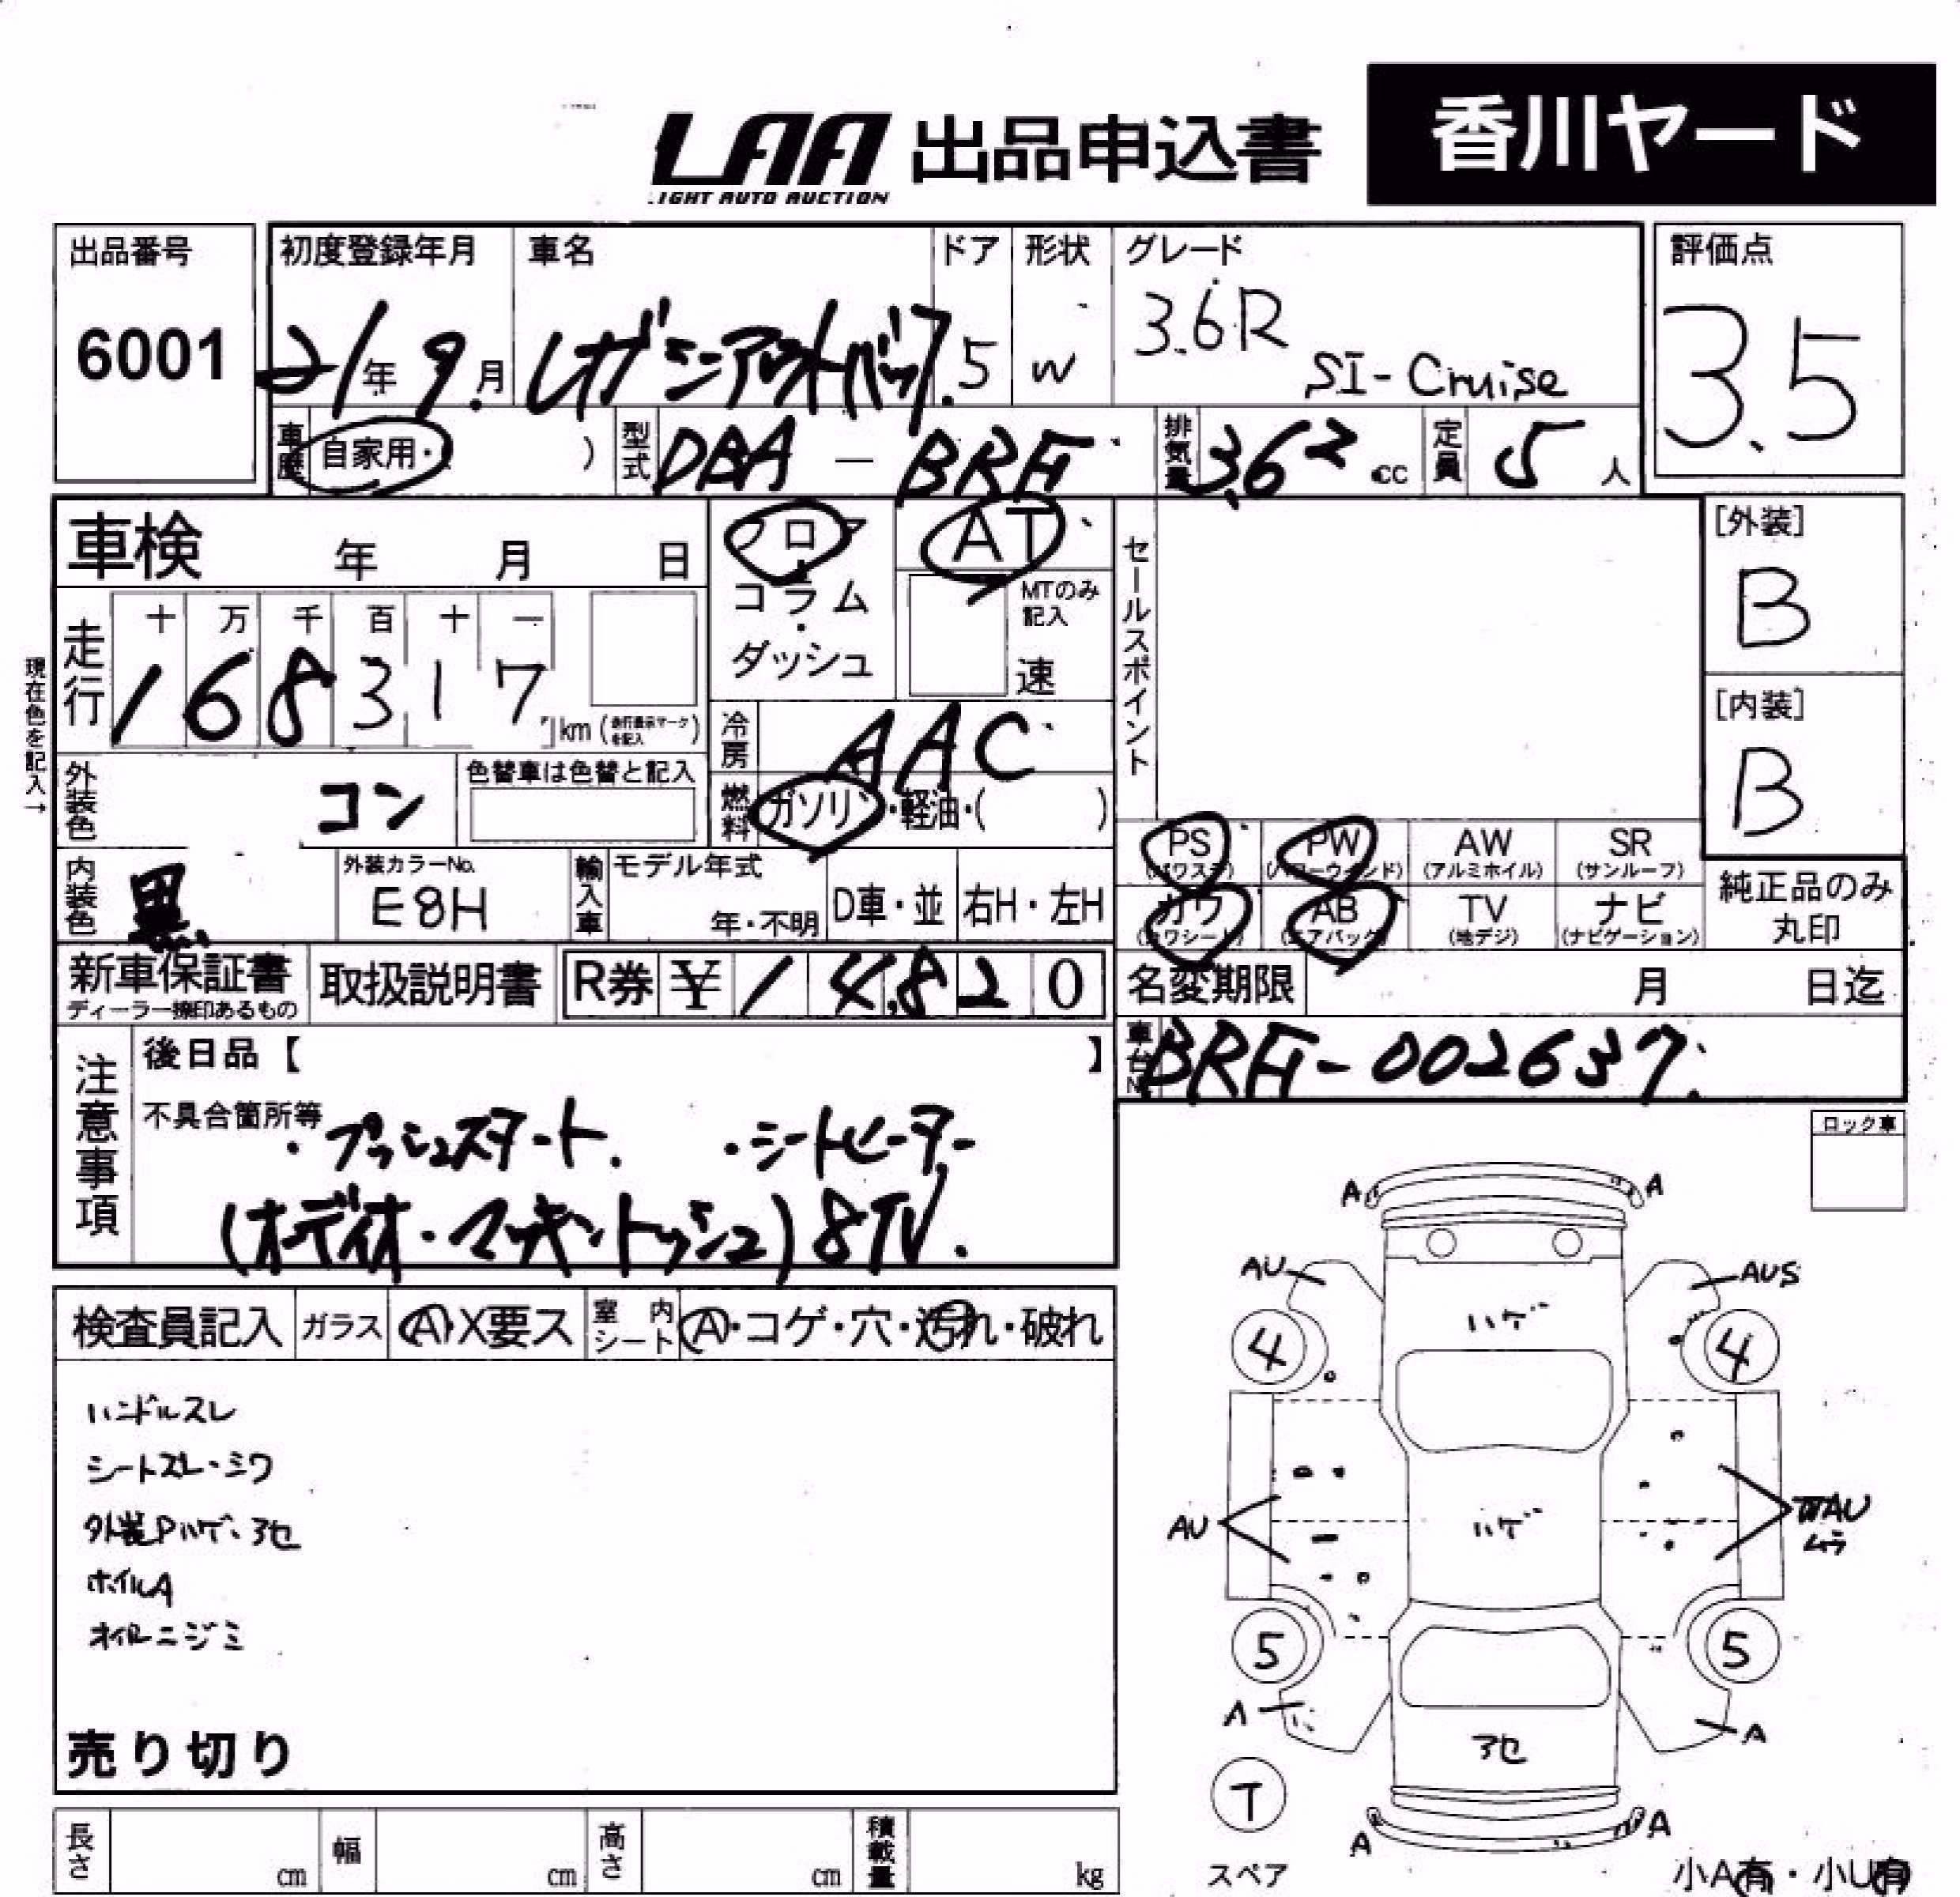 LAA 出品申込書 香川ヤード
LIGHT AUTO AUCTION
出品番号 初度登録年月 車名 ドア 形状 グレード 評価点
6001 21年9月 レガシーアウトバック 5 W 3.6R SI-Cruise 3.5
車歴 自家用・ ) 型式 DBA - BRF 排気量 362 cc 定員 5 人
車検 年 月 日 フロア AT セールスポイント [外装]
コラム MTのみ記入 B
・
ダッシュ 速
現在色を記入→
走行 十 万 千 百 十 一
168317 km (走行表示マークを記入) [内装]
冷房 AAC B
外装色 コン 色替車は色替と記入 燃料 ガソリン・軽油・( )
PS PW AW SR
(パワステ) (パワーウインド) (アルミホイル) (サンルーフ)
内装色 黒 外装カラーNo. E8H 輸入車 モデル年式 年・不明 D車・並 右H・左H
カワ AB TV ナビ 純正品のみ
(カワシート) (エアバッグ) (地デジ) (ナビゲーション) 丸印
新車保証書 取扱説明書 R券 ¥ 14,820 名変期限 月 日迄
ディーラー捺印あるもの
車台No BRF-002637
注意事項 後日品【 】
不具合箇所等 ・プッシュスタート. ・シートヒーター
(オーディオ・マッキントッシュ) 8TV.
ロック車
検査員記入 ガラス A・X要ス 室内シート A・コゲ・穴・汚れ・破れ
ハンドルスレ
シートスレ・シワ
外装Pハゲ、アセ
ホイルA
オイルニジミ
売り切り
A A
AU AUS
ハゲ
4 4
AU ハゲ
ムラ
5 5
A A
アセ
T
A A
スペア
長さ cm 幅 cm 高さ cm 積載量 kg
小A有・小U有